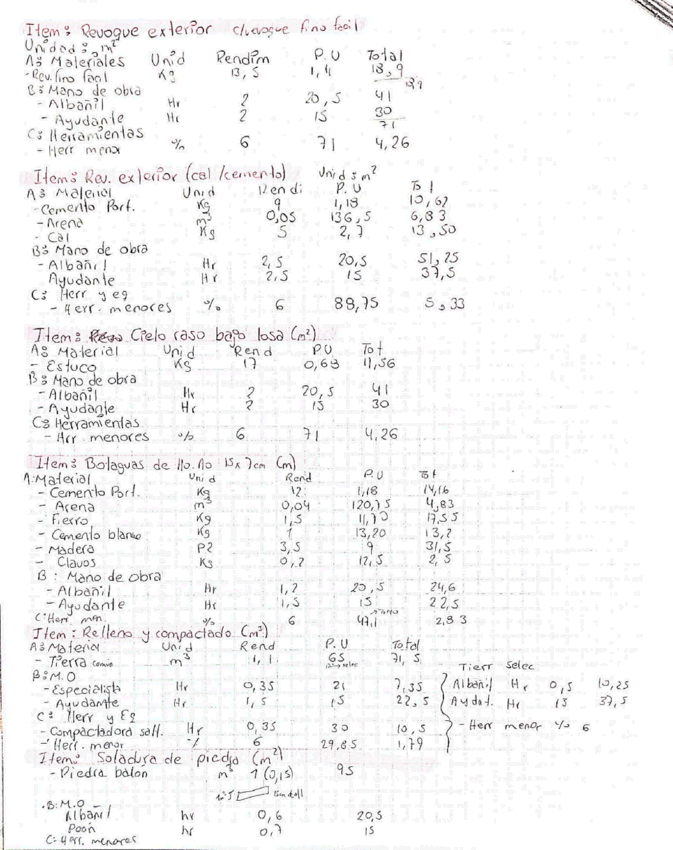 Item: Revoque exterior c/revoque fino facil
Unidad: m²
A: Materiales Unid Rendim P.U Total
- Rev. fino facil Kg 13,5 1,4 18,9
18,9
B: Mano de obra
- Albañil Hr 2 20,5 41
- Ayudante Hr 2 15 30
71
C: Herramientas
- Herr menor % 6 71 4,26
Item: Rev. exterior (cal/cemento) Unid: m²
A: Material Unid Rendi P.U Tot
- Cemento Port. Kg 9 1,18 10,62
- Arena m³ 0,05 136,5 6,83
- Cal Kg 5 2,7 13,50
B: Mano de obra
- Albañil Hr 2,5 20,5 51,25
Ayudante Hr 2,5 15 37,5
C: Herr y eq
- Herr. menores % 6 88,75 5,33
Item: Cielo raso bajo losa (m²)
A: Material Unid Rend P.U Tot
- Estuco Kg 17 0,68 11,56
B: Mano de obra
- Albañil Hr 2 20,5 41
- Ayudante Hr 2 15 30
C: Herramientas
- Hrr. menores % 6 71 4,26
Item: Botaguas de Ho.Ao 15x7cm (m)
A: Material Unid Rend P.U Tot
- Cemento Port. Kg 12 1,18 14,16
- Arena m³ 0,04 120,75 4,83
- Fierro Kg 1,5 11,70 17,55
- Cemento blanco Kg 1 13,20 13,2
- Madera P2 3,5 9 31,5
- Clavos Kg 0,2 12,5 2,5
B: Mano de obra
- Albañil Hr 1,2 20,5 24,6
- Ayudante Hr 1,5 15 22,5
C: Herr. men. % 6 47,1 2,83
Item: Relleno y compactado (m³)
A: Material Unid Rend P.U Total
- Tierra comun m³ 1,1 65 71,5
B: M.O
- Especialista Hr 0,35 21 7,35
- Ayudante Hr 1,5 15 22,5
C: Herr y Eq
- Compactadora salt. Hr 0,35 30 10,5
- Herr. menor % 6 29,85 1,79
Tierr Selec
Albañil Hr 0,5 10,25
Aydat. Hr 15 37,5
- Herr menor % 6
Item: Soladura de piedra (m²)
- Piedra bolon m³ 1 (0,15) 95
B: M.O
Albañil hr 0,6 20,5
Peón hr 0,7 15
C: Herr. menores